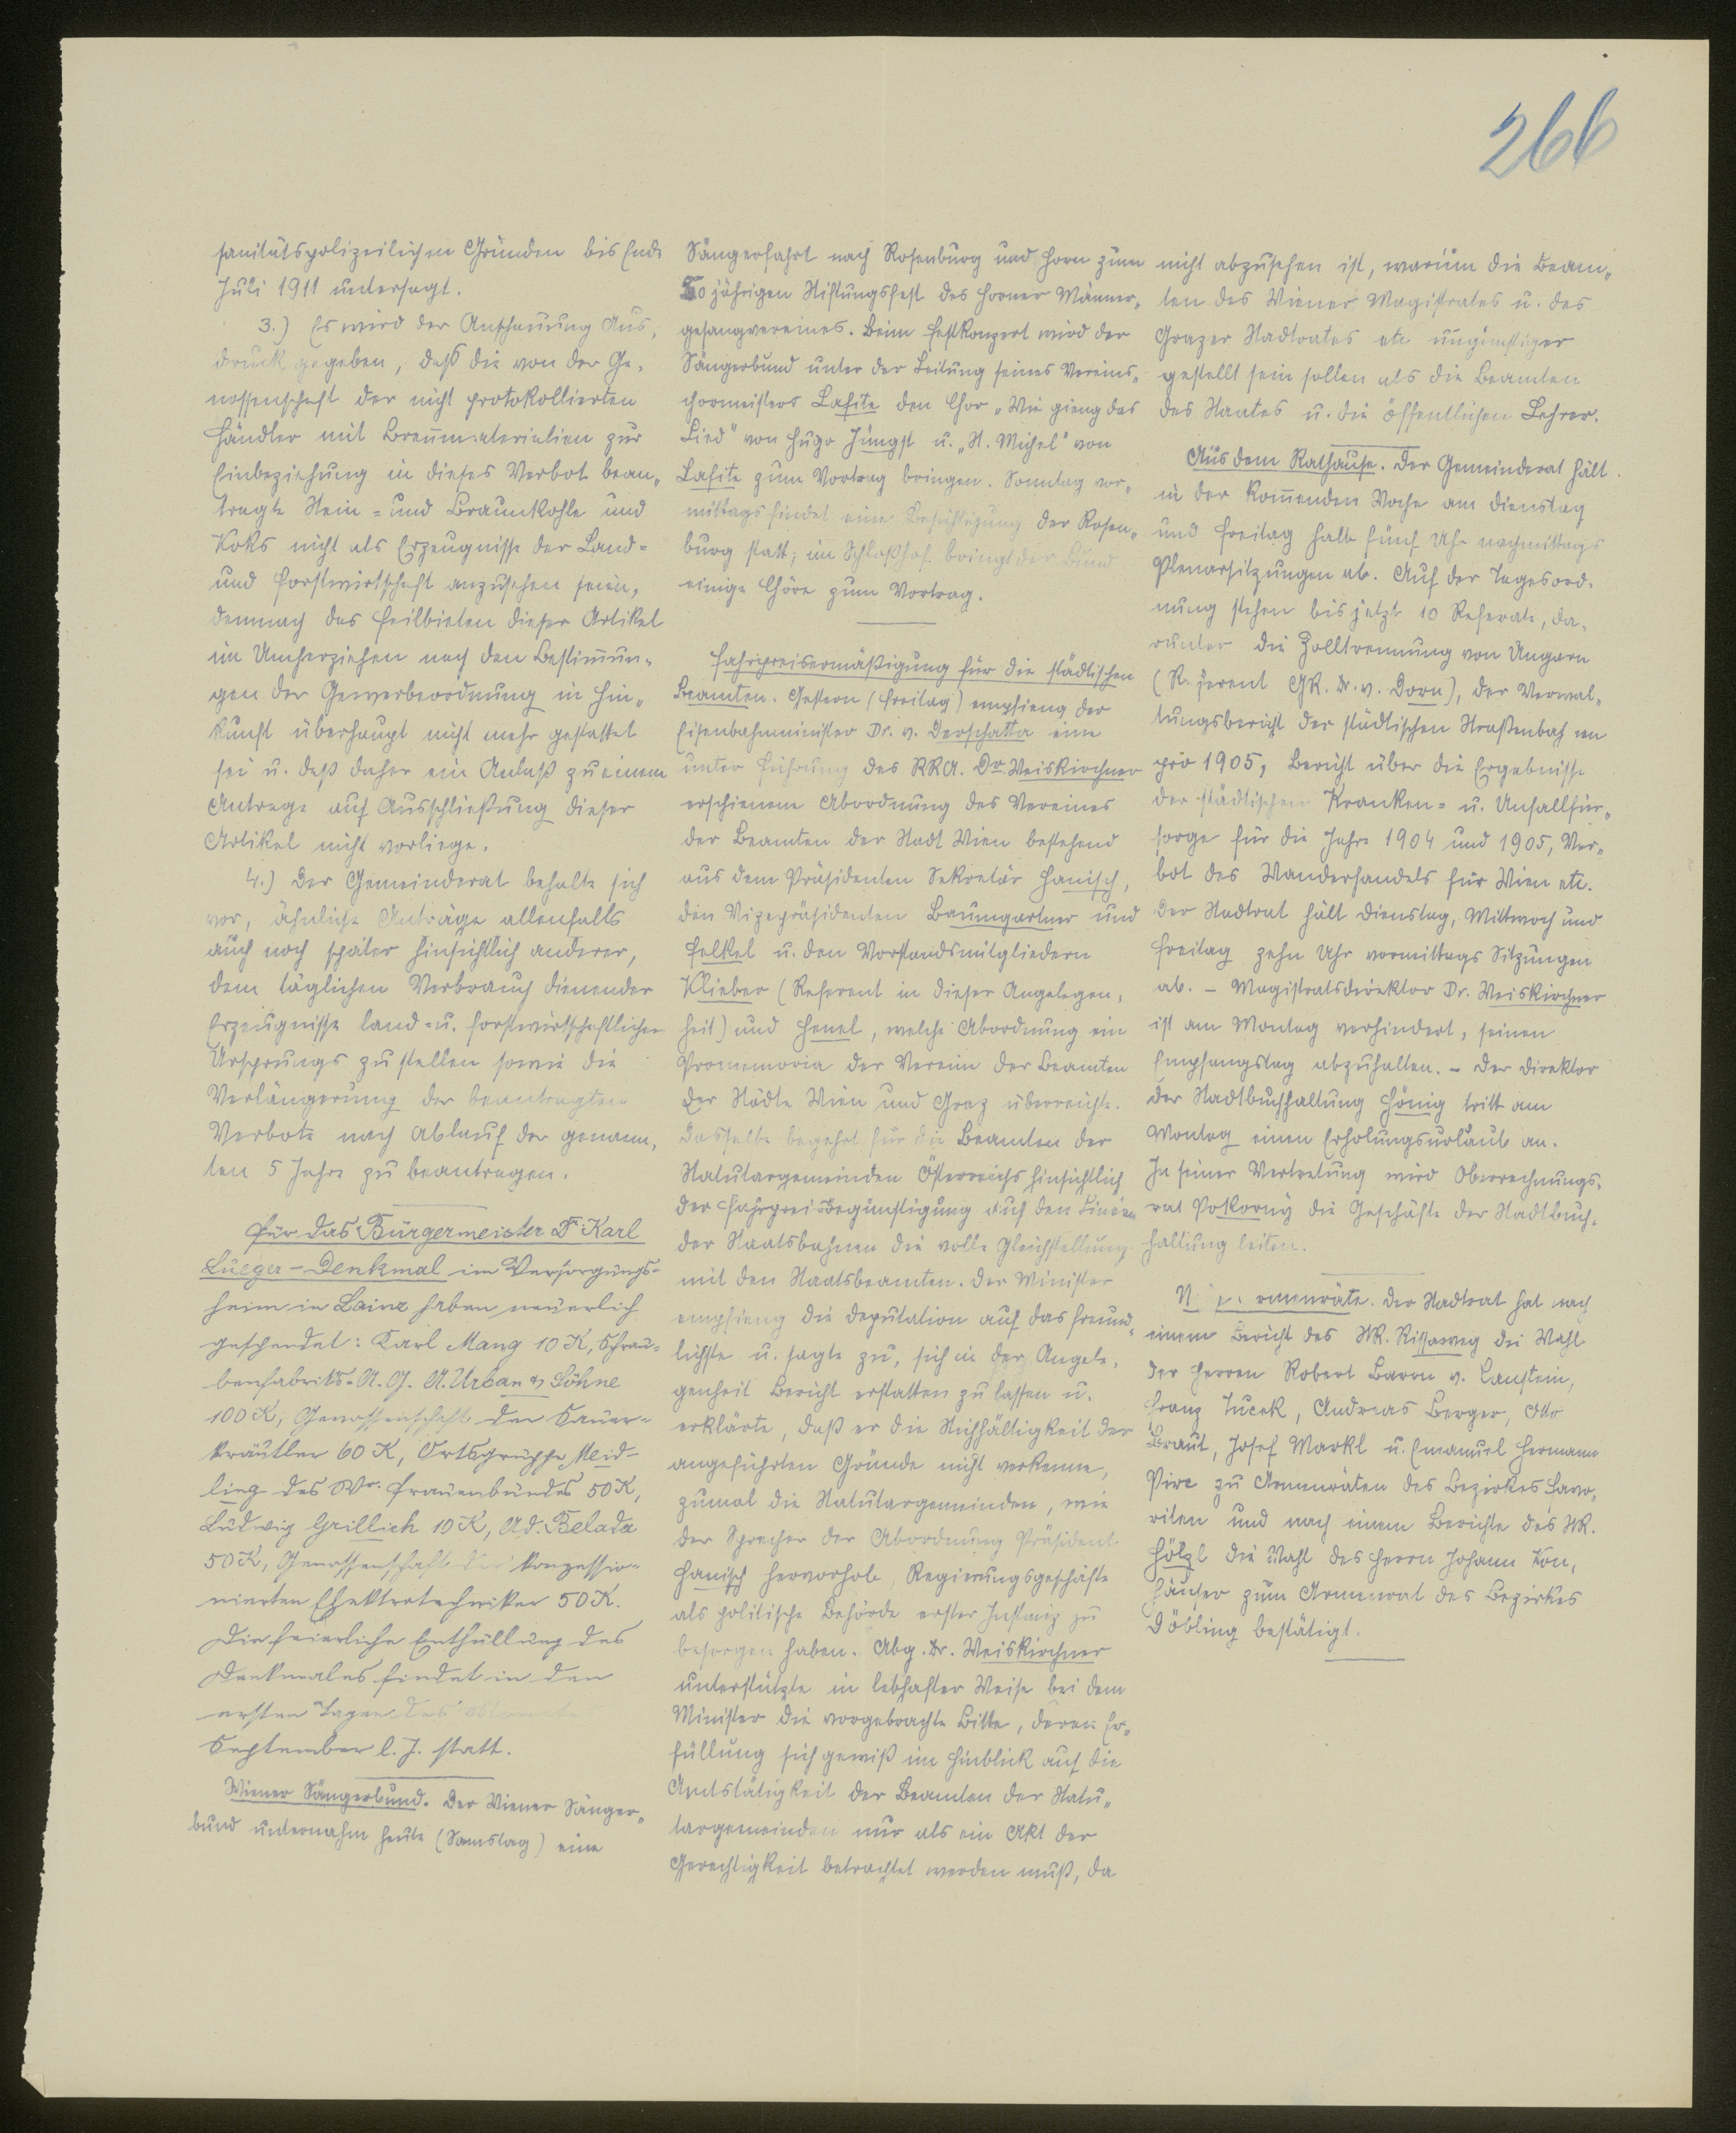 266
sanitätspolizeilichen Gründen bis Ende
Juli 1911 untersagt.
3.) Es wird der Anschauung Aus-
druck gegeben, daß die von der Ge-
nossenschaft der nicht protokollierten
Händler mit Brennmaterialien zur
Einbeziehung in dieses Verbot bean-
tragte Stein- und Braunkohle und
Koks nicht als Erzeugnisse der Land-
und Forstwirtschaft anzusehen seien,
demnach das Feilbieten dieser Artikel
im Umherziehen nach den Bestimmun-
gen der Gewerbeordnung in Hin-
kunft überhaupt nicht mehr gestattet
sei u. daß daher ein Anlaß zu einem
Antrage auf Ausschließung dieser
Artikel nicht vorliege.
4.) Der Gemeinderat behalte sich
vor, ähnliche Anträge allenfalls
auch noch später hinsichtlich anderer,
dem täglichen Verbrauch dienender
Erzeugnisse land- u. forstwirtschaftlichen
Ursprungs zu stellen sowie die
Verlängerung der beantragten
Verbote nach Ablauf der genann-
ten 5 Jahre zu beantragen.
Für das Bürgermeister Dr. Karl
Lueger-Denkmal im Versorgungs-
heim in Lainz haben neuerlich
gespendet: Karl Mang 10 K, Schrau-
benfabriks-A.G. A. Urban & Söhne
100 K, Genossenschaft der Sauer-
kräutler 60 K, Ortsgruppe Meid-
ling des Wr. Frauenbundes 50 K,
Ludwig Grillich 10 K, Ad. Belada
50 K, Genossenschaft der konzessio-
nierten Elektrotechniker 50 K.
Die feierliche Enthüllung des
Denkmales findet in den
ersten Tagen des Monates
September l. J. statt.
Wiener Sängerbund. Der Wiener Sänger-
bund unternahm heute (Samstag) eine
Sängerfahrt nach Rosenburg und Horn zum
50 jährigen Stiftungsfest des Horner Männer-
gesangvereines. Beim Festkonzert wird der
Sängerbund unter der Leitung seines Vereins-
chormeisters Lafite den Chor „Wie gieng das
Lied" von Hugo Jüngst u. „St. Michel" von
Lafite zum Vortrag bringen. Sonntag vor-
mittags findet eine Besichtigung der Rosen-
burg statt; im Schloßhof bringt der Bund
einige Chöre zum Vortrag.
Fahrpreisermäßigung für die städtischen
Beamten. Gestern (Freitag) empfieng der
Eisenbahnminister Dr. v. Derschatta eine
unter Führung des RRA. Dr. Weiskirchner
erschienene Abordnung des Vereines
der Beamten der Stadt Wien bestehend
aus dem Präsidenten Sekretär Hanisch,
den Vizepräsidenten Baumgartner und
Felkel u. den Vorstandsmitgliedern
Klieber (Referent in dieser Angelegen-
heit) und Henel, welche Abordnung ein
Promemoria der Vereine der Beamten
der Städte Wien und Graz überreichte.
Dasselbe begehrt für die Beamten der
Statutargemeinden Österreichs hinsichtlich
der Fahrpreisbegünstigung auf den Linien
der Staatsbahnen die volle Gleichstellung
mit den Staatsbeamten. Der Minister
empfieng die Deputation auf das freund-
lichste u. sagte zu, sich in der Angele-
genheit Bericht erstatten zu lassen u.
erklärte, daß er die Stichhältigkeit der
angeführten Gründe nicht verkenne,
zumal die Statutargemeinden, wie
der Sprecher der Abordnung Präsident
Hanisch hervorhob, Regierungsgeschäfte
als politische Behörde erster Instanz zu
besorgen haben. Abg. Dr. Weiskirchner
unterstützte in lebhafter Weise bei dem
Minister die vorgebrachte Bitte, deren Er-
füllung sich gewiß im Hinblick auf die
Amtstätigkeit der Beamten der Statu-
targemeinden nur als ein Akt der
Gerechtigkeit betrachtet werden muß, da
nicht abzusehen ist, warum die Beam-
ten des Wiener Magistrates u. des
Grazer Stadtrates etc ungünstiger
gestellt sein sollen als die Beamten
des Staates u. die öffentlichen Lehrer.
Aus dem Rathause. Der Gemeinderat hält
in der kommenden Woche am Dienstag
und Freitag halb fünf Uhr nachmittags
Plenarsitzungen ab. Auf der Tagesord-
nung stehen bis jetzt 10 Referate, da-
runter die Zolltrennung von Ungarn
(Referent GR. Dr. v. Dorn), der Verwal-
tungsbericht der städtischen Straßenbahnen
pro 1905, Bericht über die Ergebnisse
der städtischen Kranken- u. Unfallfür-
sorge für die Jahre 1904 und 1905, Ver-
bot des Wanderhandels für Wien etc.
Der Stadtrat hält Dienstag, Mittwoch und
Freitag zehn Uhr vormittags Sitzungen
ab. – Magistratsdirektor Dr. Weiskirchner
ist am Montag verhindert, seinen
Empfangstag abzuhalten. – Der Direktor
der Stadtbuchhaltung Hönig tritt am
Montag einen Erholungsurlaub an.
In seiner Vertretung wird Oberrechnungs-
rat Pokorny die Geschäfte der Stadtbuch-
haltung leiten.
Armenräte. Der Stadtrat hat nach
einem Bericht des StR. Rissaweg die Wahl
der Herren Robert Baron v. Canstein,
Franz Tucek, Andreas Berger, Otto
Braut, Josef Markl u. Emanuel Hermann
Pire zu Armenräten des Bezirkes Favo-
riten und nach einem Berichte des StR.
Hölzl die Wahl des Herrn Johann Kon-
häuser zum Armenrat des Bezirkes
Döbling bestätigt.